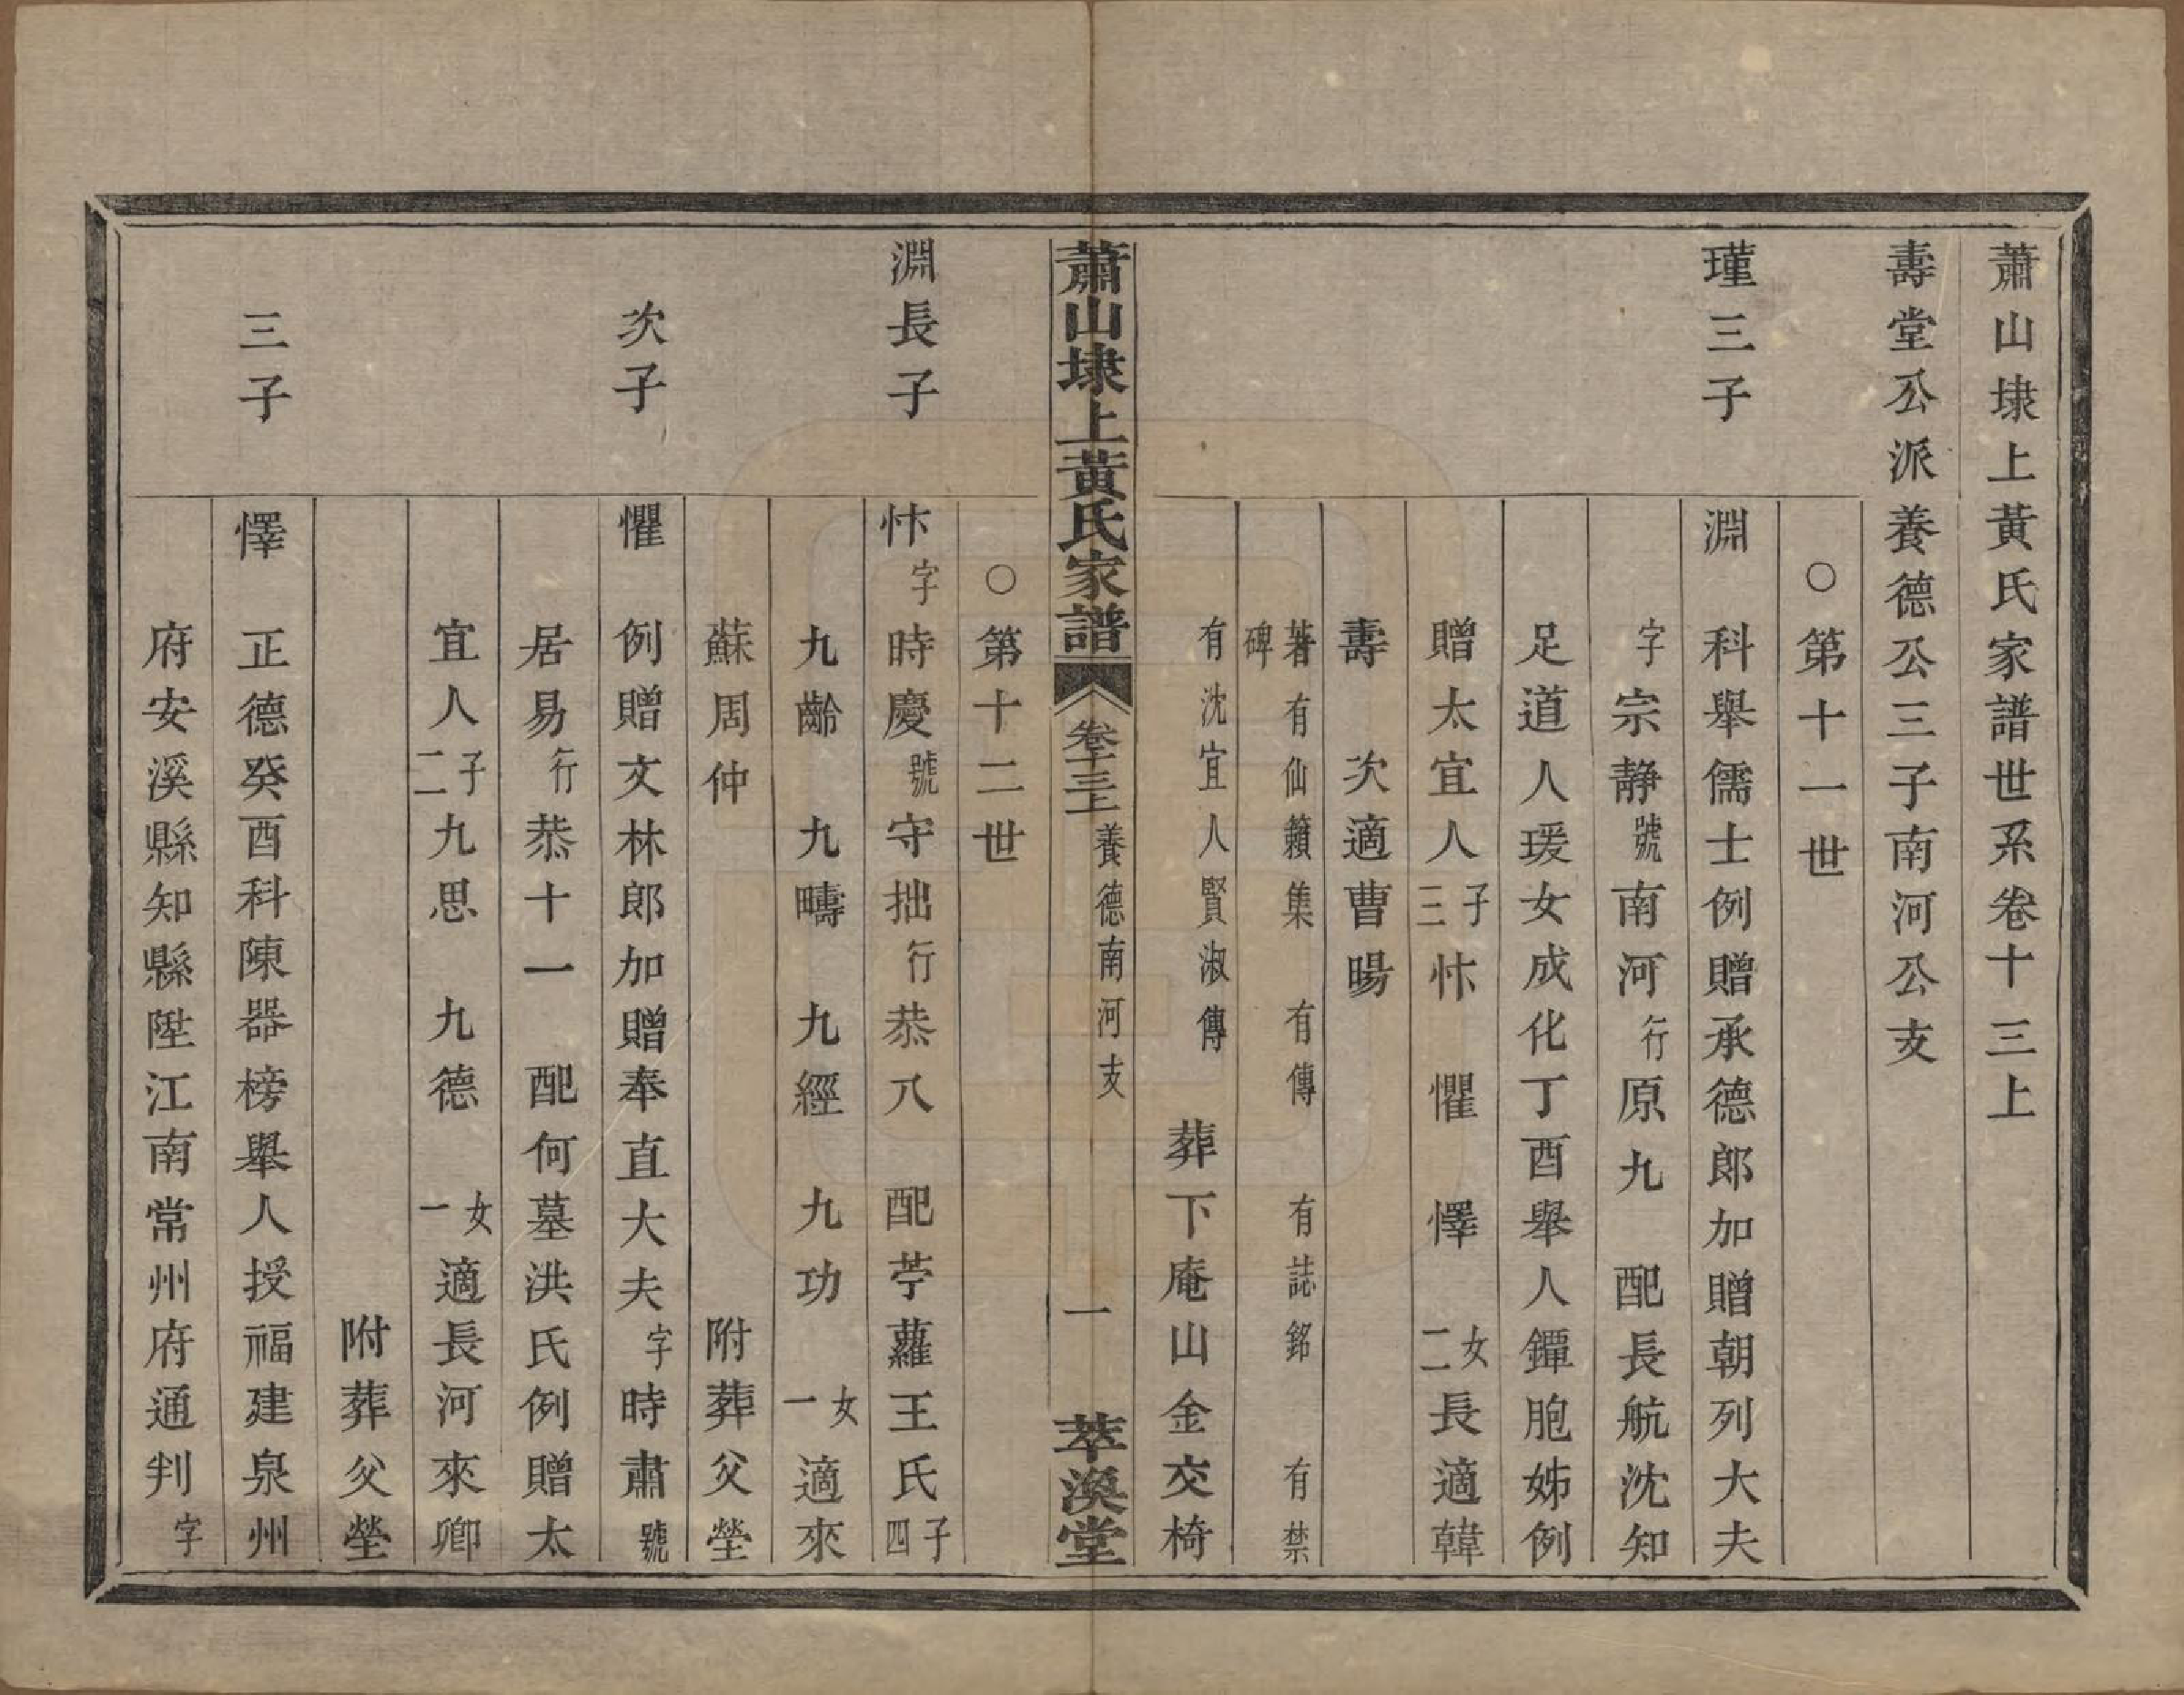 蕭山埭上黃氏家譜世系卷十三上
壽堂公派養德公三子南河公支
○第十一世
瑾三子 淵 科舉儒士例贈承德郎加贈朝列大夫
字宗靜號南河行原九 配長航沈知
足道人瑗女成化丁酉舉人鐔胞姊例
贈太宜人子三忭 懼 懌 女二長適韓
壽 次適曹暘
著有仙籟集 有傳 有誌銘 有禁
碑
有沈宜人賢淑傳 葬下庵山金交椅
蕭山埭上黃氏家譜 卷十三上 養德南河支 一 萃渙堂
○第十二世
淵長子 忭字時慶號守拙行恭八 配苧蘿王氏子四
九齡 九疇 九經 九功 女一適來
蘇周仲 附葬父塋
次子 懼 例贈文林郎加贈奉直大夫字時肅號
居易行恭十一 配何墓洪氏例贈太
宜人子二九思 九德 女一適長河來卿
附葬父塋
三子 懌 正德癸酉科陳器榜舉人授福建泉州
府安溪縣知縣陞江南常州府通判字